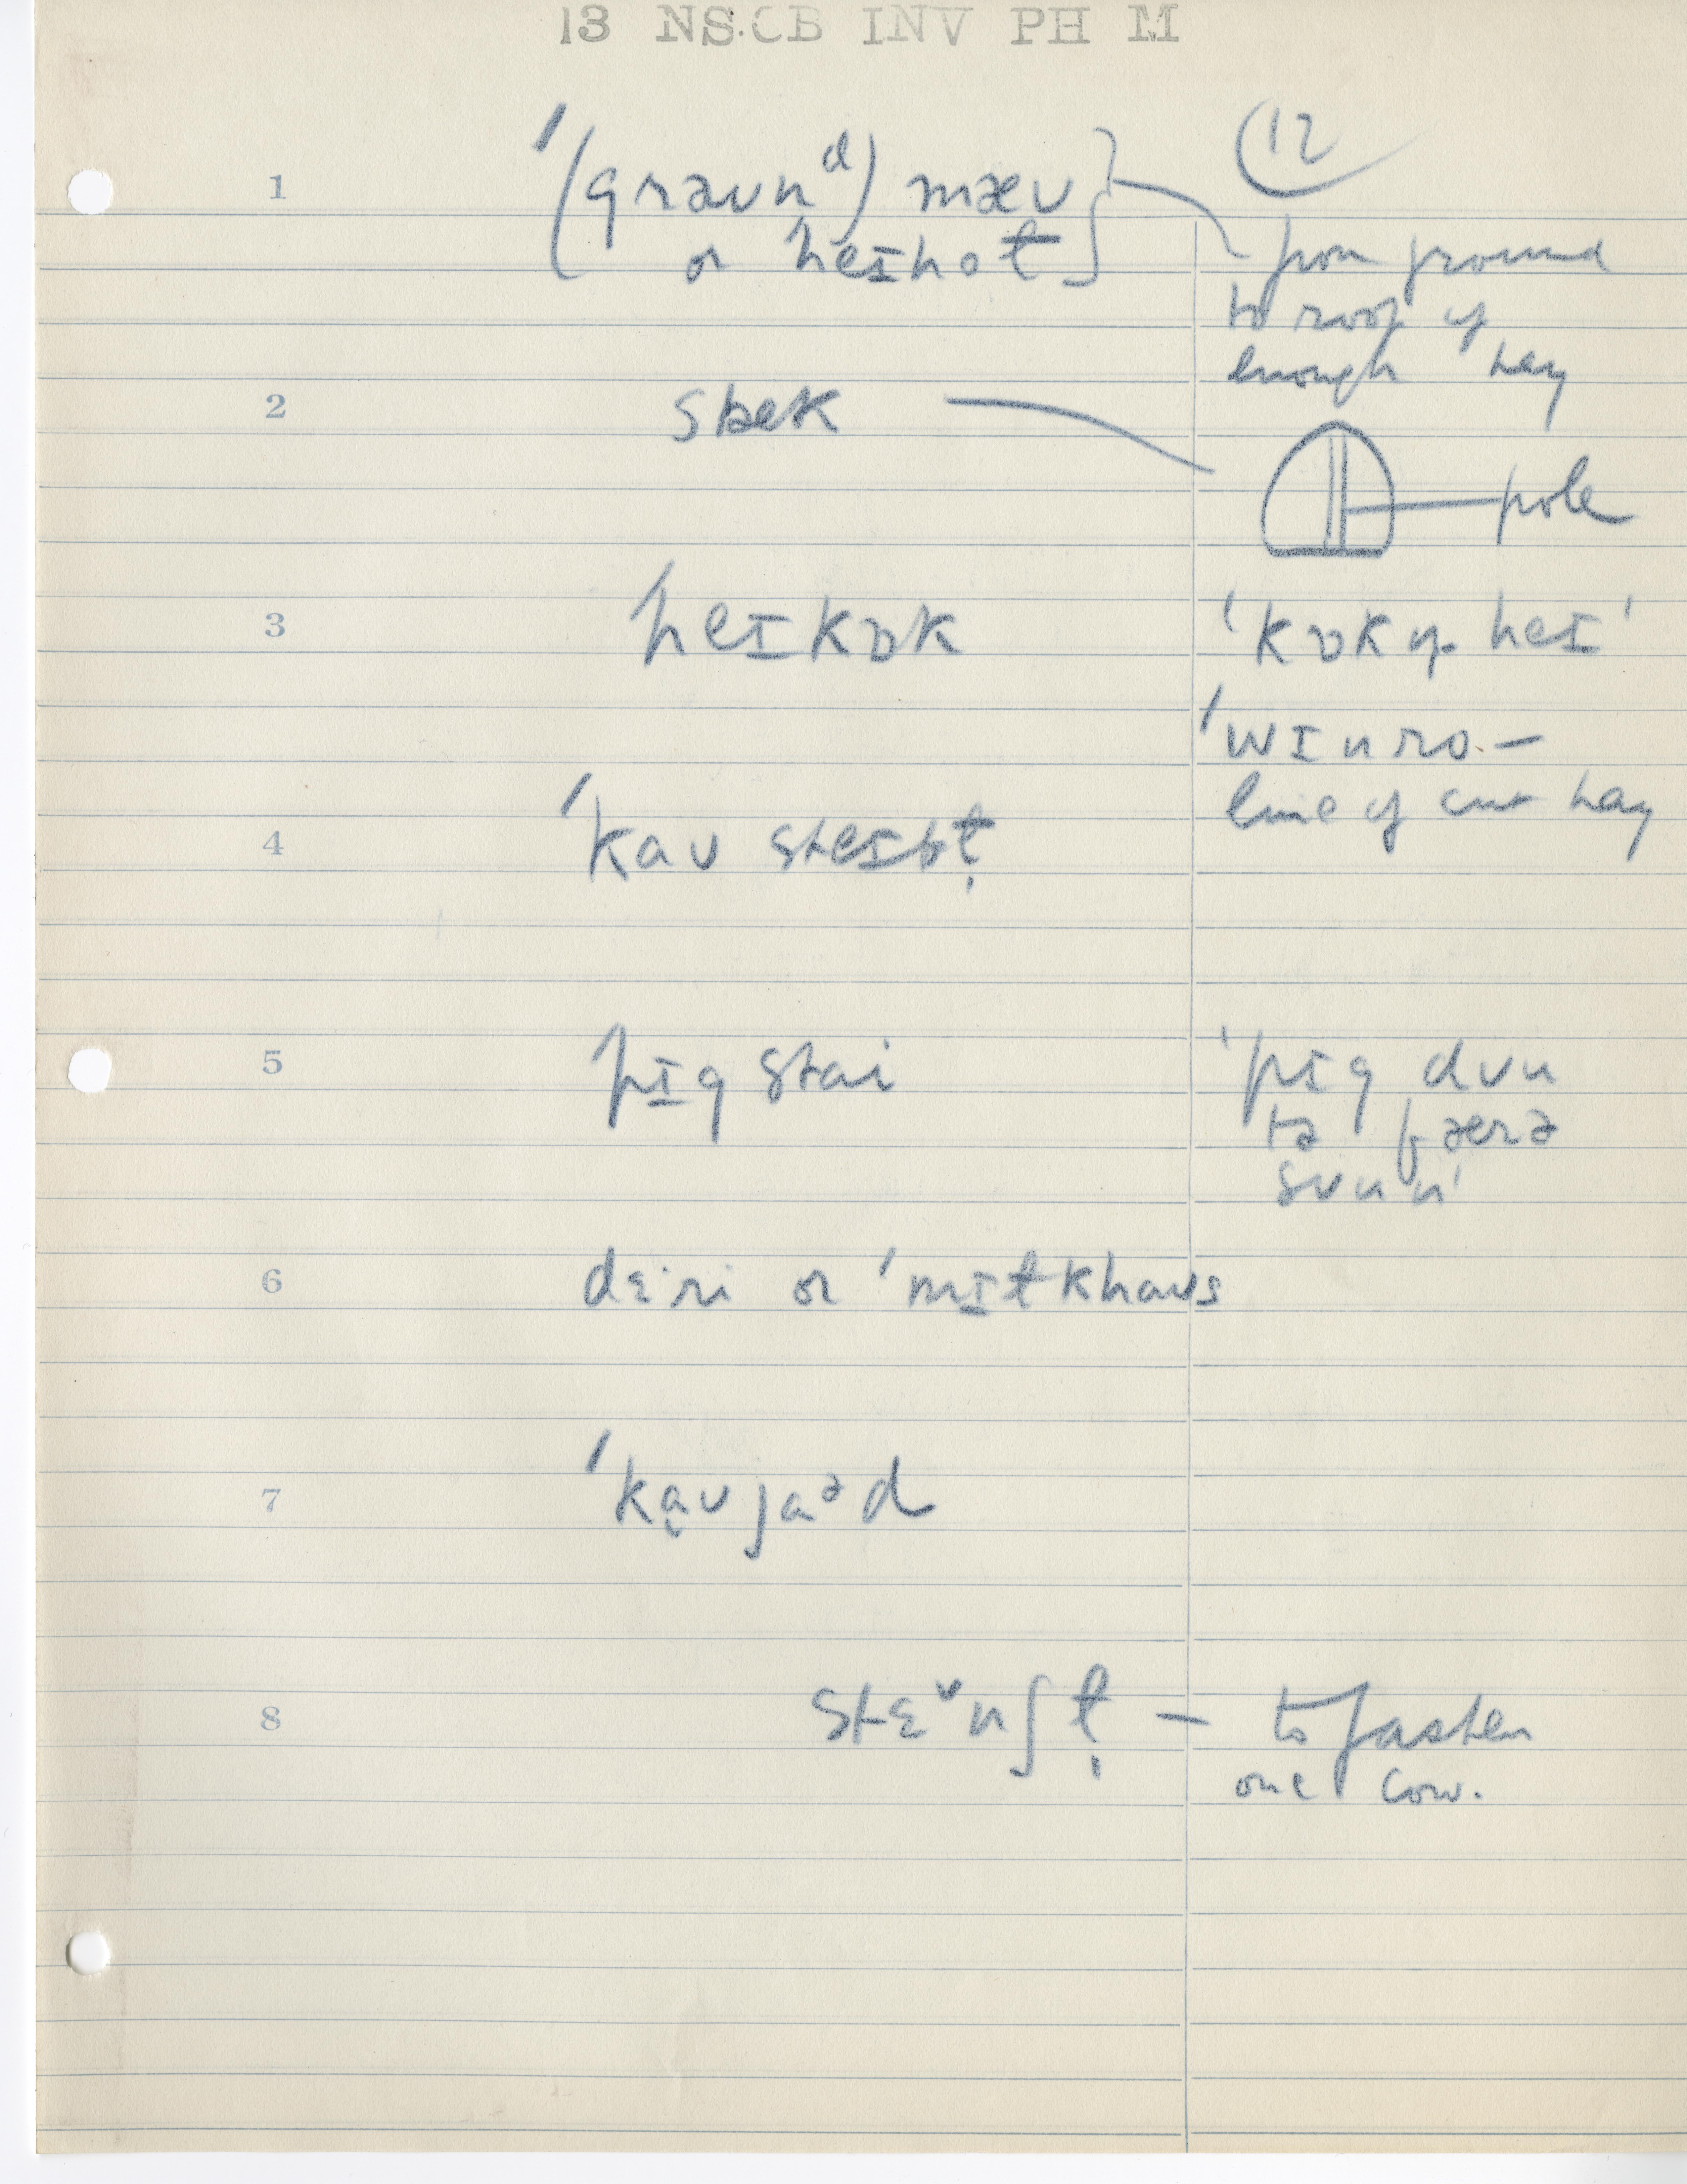 13 NS.CB INV PH M
(12
1 ˈ(grəʊnᵈ) mæʊ
or heɪhoɫ
from ground
to roof if
enough hay
2 stæk
pole
3 heɪkɒk
'kɒk ɒp heɪ'
ˈwɪnro –
line of cut hay
4 ˈkaʊ steɪbɫ̩
5 pɪg staɪ
'pɪg dʌn
tə færə
sʌnn'
6 dɛˑri or ˈmɪɫkhaʊs
7 ˈkạʊjaᵊd
8 stɛᵛnʃɫ̩ – to fasten
one cow.